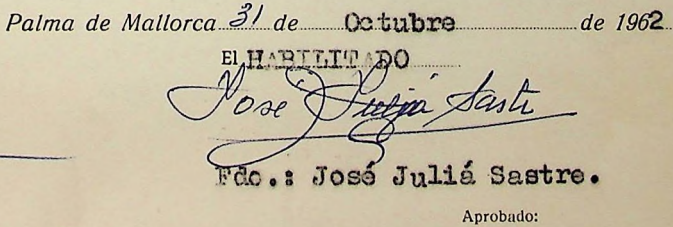 Palma de Mallorca 31 de Octubre de 1962
El HABILITADO
José Juliá Sastre
Fdo.: José Juliá Sastre.
Aprobado: